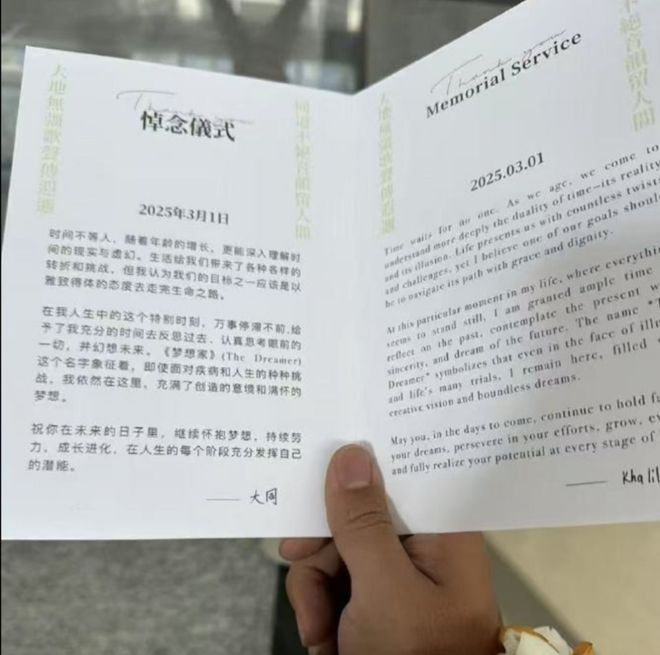 Thank you
悼念儀式
2025年3月1日
时间不等人，随着年龄的增长，更能深入理解时
间的现实与虚幻。生活给我们带来了各种各样的
转折和挑战，但我认为我们的目标之一应该是以
雅致得体的态度去走完生命之路。
在我人生中的这个特别时刻，万事停滞不前，给
予了我充分的时间去反思过去、认真思考眼前的
一切，并幻想未来。《梦想家》(The Dreamer)
这个名字象征着，即使面对疾病和人生的种种挑
战，我依然在这里，充满了创造的意境和满怀的
梦想。
祝你在未来的日子里，继续怀抱梦想，持续努
力，成长进化，在人生的每个阶段充分发挥自己
的潜能。
—— 大同
Thank you
Memorial Service
2025.03.01
Time waits for no one. As we age, we come to
understand more deeply the duality of time—its reality
and its illusion. Life presents us with countless twists
and challenges, yet I believe one of our goals should
be to navigate its path with grace and dignity.
At this particular moment in my life, where everything
seems to stand still, I am granted ample time
reflect on the past, contemplate the present
sincerity, and dream of the future. The name
Dreamer" symbolizes that even in the face of
and life's many trials, I remain here, filled
creative vision and boundless dreams.
May you, in the days to come, continue to hold
your dreams, persevere in your efforts, grow,
and fully realize your potential at every stage of
—— Khalil